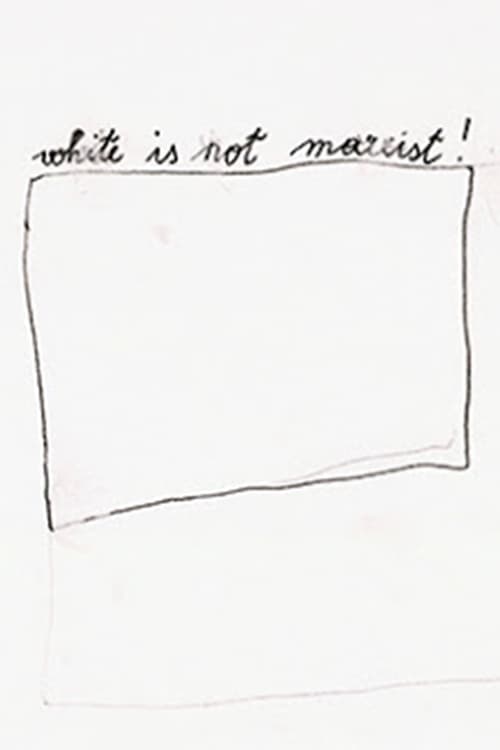 white is not marxist!